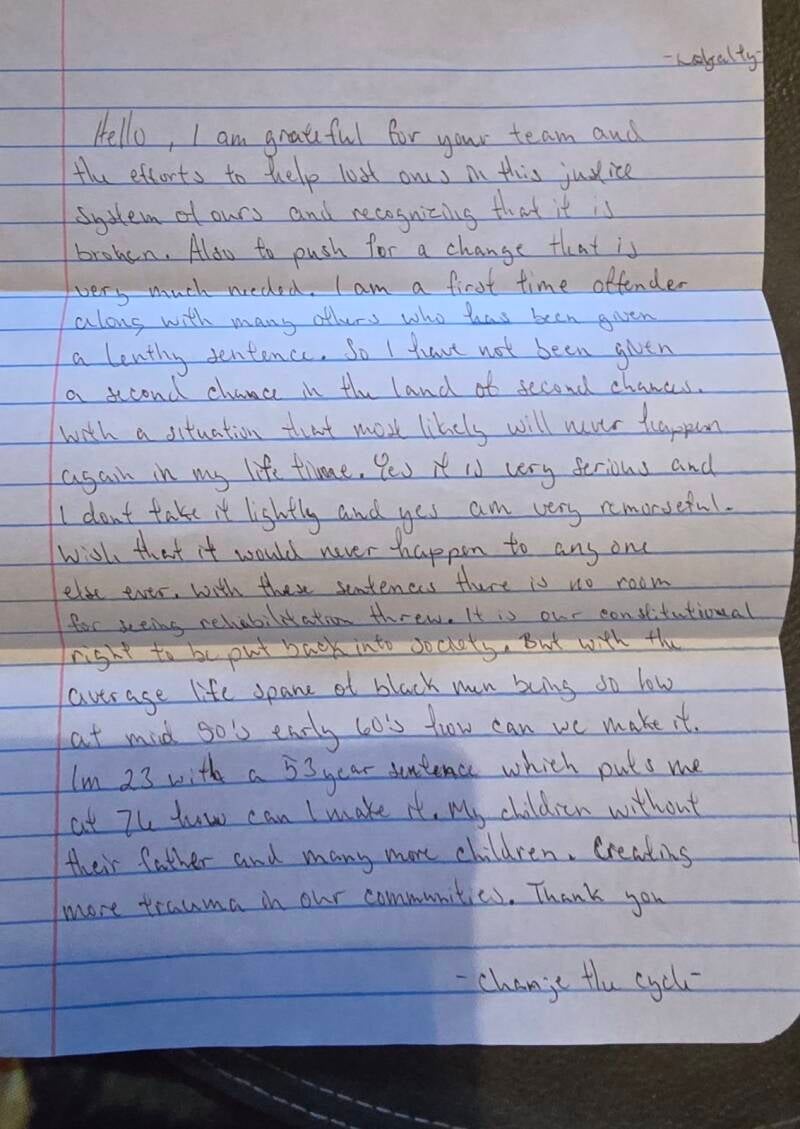 -Loyalty-
Hello, I am grateful for your team and
the efforts to help lost ones in this justice
system of ours and recognizing that it is
broken. Also to push for a change that is
very much needed. I am a first time offender
along with many others who has been given
a lenthy sentence. So I have not been given
a second chance in the land of second chances.
With a situation that most likely will never happen
again in my life time. Yes it is very serious and
I dont take it lightly and yes am very remorseful.
Wish that it would never happen to any one
else ever. With these sentences there is no room
for seeing rehabilitation threw. It is our constitutional
right to be put back into society. But with the
average life spane of black men being so low
at mid 50's early 60's how can we make it.
Im 23 with a 53 year sentence which puts me
at 76 how can I make it. My children without
their father and many more children. Creating
more trauma in our communities. Thank you
-Change the cycle-